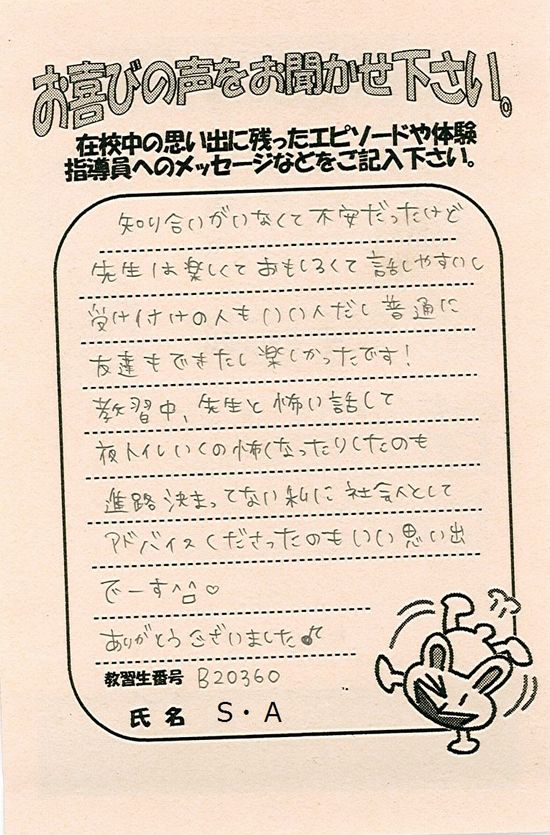 お喜びの声をお聞かせ下さい。
在校中の思い出に残ったエピソードや体験
指導員へのメッセージなどをご記入下さい。
知り合いがいなくて不安だったけど
先生は楽しくておもしろくて話しやすいし
受け付けの人もいい人だし普通に
友達もできたし楽しかったです!
教習中、先生と怖い話して
夜トイレいくの怖くなったりしたのも
進路決まってない私に社会人として
アドバイスくださったのもいい思い出
でーす^□^♡
ありがとうございました♪
教習生番号 B20360
氏名 S・A